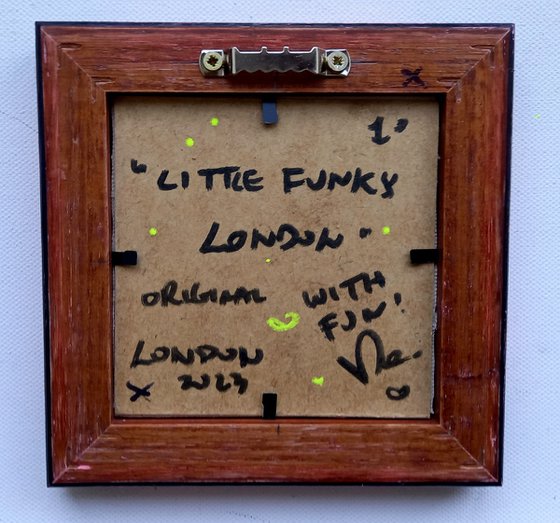 1"
"LITTLE FUNKY
LONDON"
ORIGINAL WITH
FUN!
LONDON
2023